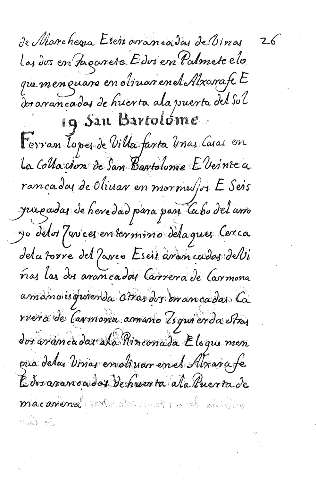 de Marchena E seis arrancadas de Vinas 26
las dos en Tagarete E dos en Palmete e lo
que menguare en olivar en el Alxarafe E
dos arancadas de huerta ala puerta del Sol
19 San Bartolome
Ferran Lopes de Villafarta Unas Casas en
la Collacion de San Bartolome E Veinte a
rançadas de Olivar en mormujos E Seis
yugadas de heredad para pan Cabo del arro
yo delos en termino delaques Cerca
dela torre del E seis arancadas de Vi
ñas las dos arancadas Carrera de Carmona
a mano isquierda otras dos arancadas Ca
rrera de Carmona amano Izquierda otras
dos arancadas ala Rinconada E lo que men
gua delas Vinas en olivar en el Alxarafe
E dos arancadas de huerta ala Puerta de
macarena